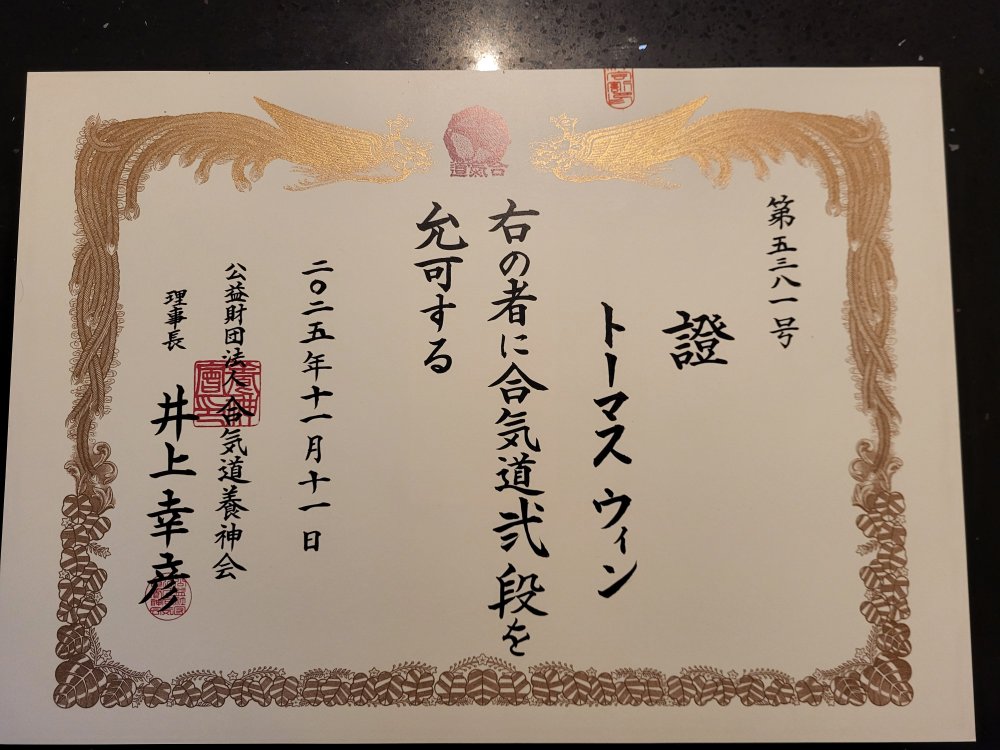 第五三八一号
證
トーマス ウィン
右の者に合気道弐段を
允可する
二〇二五年十一月十一日
公益財団法人合気道養神会
理事長 井上幸彦
道氣合